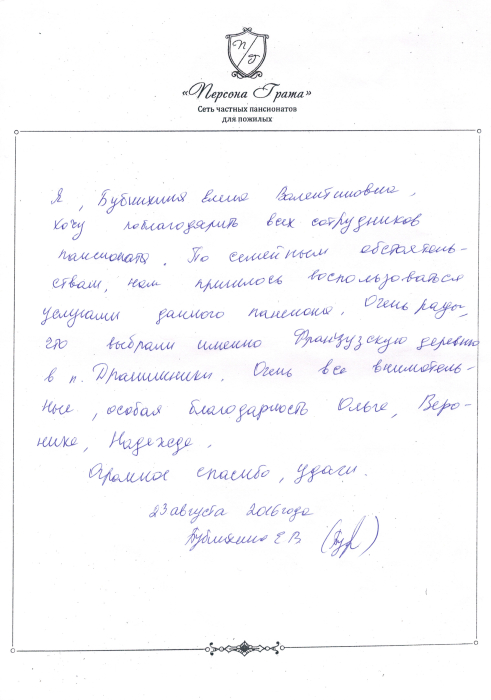 П Г
«Персона Грата»
Сеть частных пансионатов
для пожилых
Я, Бубнихина Елена Валентиновна,
хочу поблагодарить всех сотрудников
пансионата. По семейным обстоятель-
ствам, нам пришлось воспользоваться
услугами данного пансиона. Очень рады,
что выбрали именно Французскую деревню
в п. Драчшники. Очень все вниматель-
ные, особая благодарность Ольге, Веро-
нике, Надежде.
Огромное спасибо, удачи.
23 августа 2016 года
Бубнихина Е В